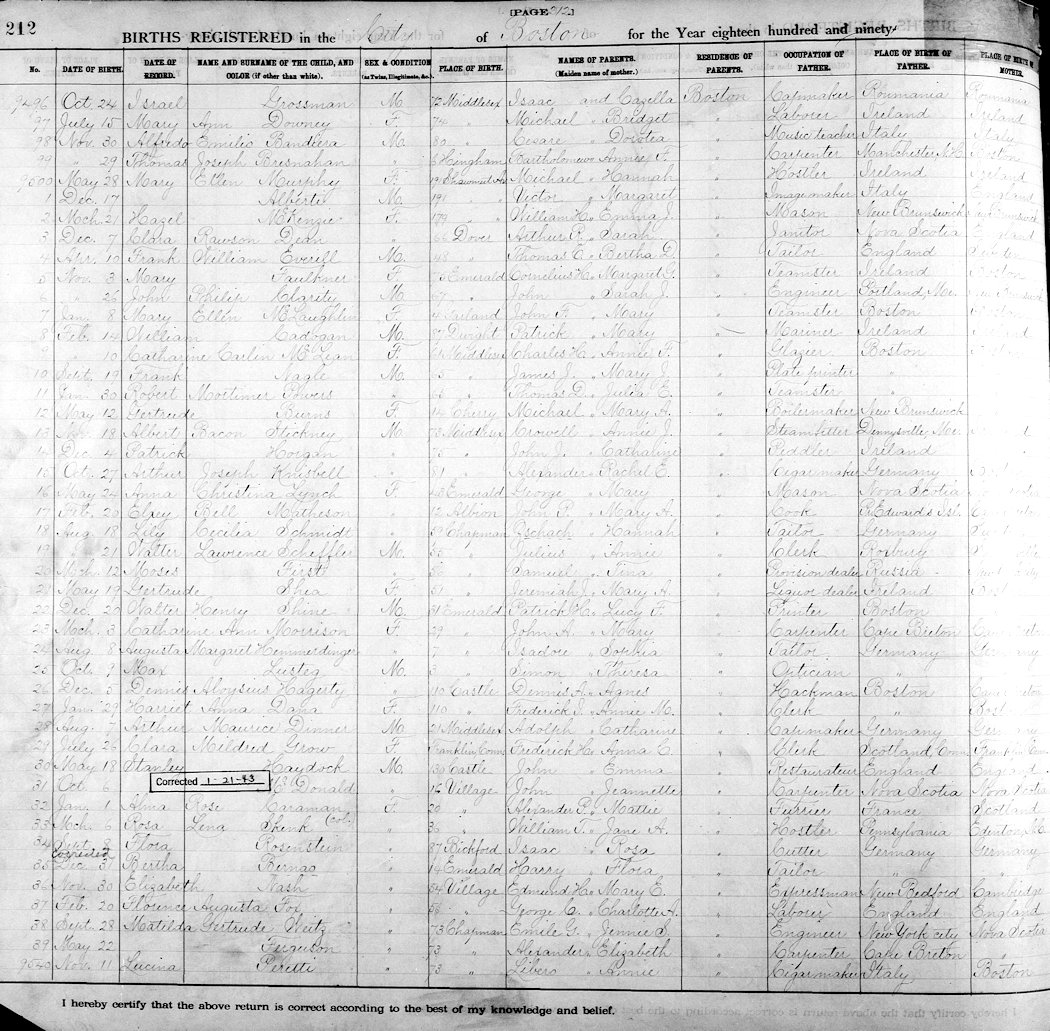 [PAGE 212]
212
BIRTHS REGISTERED in the City of Boston for the Year eighteen hundred and ninety-
No. DATE OF BIRTH. DATE OF RECORD. NAME AND SURNAME OF THE CHILD, AND COLOR (if other than white). SEX & CONDITION (as Twins, Illegitimate, &c.) PLACE OF BIRTH. NAMES OF PARENTS. (Maiden name of mother.) RESIDENCE OF PARENTS. OCCUPATION OF FATHER. PLACE OF BIRTH OF FATHER. PLACE OF BIRTH OF MOTHER.
9496 Oct. 24 Israel Grossman M. 72 Middlesex Isaac and Boston Capmaker Roumania Roumania
97 July 15 Mary Ann Downey F. 74 " Michael " Bridget " Laborer Ireland Ireland
98 Nov. 30 Alfredo Emilio Bandiera M. 80 " Cesare " " Music teacher Italy Italy
99 " 29 Thomas Joseph Bresnahan " Hingham Bartholomew Annie F. " Carpenter Manchester N.H. Boston
9500 May 28 Mary Ellen Murphy F. Shawmut Av Michael " Hannah " Hostler Ireland Ireland
1 Dec. 17 Alberti M. 191 " Victor " Margaret " Imagemaker Italy England
2 Mch. 21 Hazel McKenzie F. 179 " William H. " Emma J. " Mason New Brunswick
3 Dec. 7 Clara Rawson Dean " 66 Dover Arthur P. " Sarah " Janitor Nova Scotia England
4 Apr. 10 Frank William Everell M. 48 " Thomas E. " Bertha D. " Tailor England Sweden
5 Nov. 3 Mary Faulkner F. Emerald Cornelius H. " Margaret G. " Teamster Ireland Boston
6 " 26 John Philip Clarity M. 67 " John " Sarah J. " Engineer Portland, Me.
7 Jan. 8 Mary Ellen McLaughlin F. 4 John F. " Mary " Teamster Boston
8 Feb. 14 William Cadogan M. 87 Dwight Patrick " Mary " Mariner Ireland Ireland
9 " 10 Catharine Carlin McLean F. 64 Middlesex Charles H. " Annie F. " Glazier Boston
10 Sept. 19 Frank Nagle M. 5 " James J. " Mary J. " Plate printer "
11 Jan. 30 Robert Mortimer Powers " " Thomas D. " Julia E. " Teamster "
12 May 12 Gertrude Burns F. 14 Cherry Michael " Mary A. " Boilermaker New Brunswick
13 Nov. 18 Albert Bacon Stickney M. 73 Middlesex Crowell " Annie J. " Steamfitter Dennysville, Me.
14 Dec. 4 Patrick Horgan " 75 " John J. " Catharine " Peddler Ireland
15 Oct. 27 Arthur Joseph " 81 " Alexander " Rachel E. " Cigarmaker Germany
16 May 24 Anna Christina Lynch F. 45 Emerald George " Mary " Mason Nova Scotia
17 Feb. 20 Bell Matheson " 12 Albion John P. " Mary A. " Cook Pr. Edward's Isl.
18 Aug. 18 Lily Cecilia Schmidt " 59 Chapman " Hannah " Tailor Germany
19 " 21 Walter Lawrence Scheffler M. 55 " Julius " Annie " Clerk Roxbury
20 Mch. 12 Moses First " 56 " Samuel " Tina " Provision dealer Russia
21 May 19 Gertrude Shea F. 51 " Jeremiah J. " Mary A. " Liquor dealer Ireland
22 Dec. 20 Walter Henry Shine M. 31 Emerald Patrick H. " Lucy F. " Printer Boston
23 Mch. 3 Catharine Ann Morrison F. 29 " John A. " Mary " Carpenter Cape Breton
24 Aug. 8 Augusta Margaret Hemmerdinger " 7 " Isadore " Sophia " Tailor Germany Germany
25 Oct. 9 Max Lusteg M. 3 " Simon " Theresa " Optician "
26 Dec. 5 Dennis Aloysius Hagerty " 110 Castle Dennis A. " Agnes " Hackman Boston
27 Jan. 29 Harriet Anna Dana F. 110 " Frederick J. " Annie M. " Clerk "
28 Aug. 7 Arthur Maurice Dinner M. 21 Middlesex Adolph " Catharine " Capmaker Germany Germany
29 July 26 Clara Mildred Grow F. Franklin Conn Frederick H. " Anna C. " Clerk Scotland, Conn Franklin Conn
30 May 18 Stanley Haydock M. 130 Castle John " Emma " Restaurateur England England
31 Oct. 6 Corrected 1-21-43 McDonald " 16 Village John " Jeannette " Carpenter Nova Scotia Nova Scotia
32 Jan. 1 Anna Rose Caraman F. 20 " Alexander P. " Mattie " Furrier France Scotland
33 Mch. 6 Rosa Lena Shenk (col.) " 36 " William T. " Jane A. " Hostler Pennsylvania
34 Sept. Flora Rosenstein " 87 Bickford Isaac " Rosa " Cutter Germany Germany
Corrected
35 Dec. 31 Bertha Bernao " 14 Emerald Harry " Flora " Tailor " "
36 Nov. 30 Elizabeth Nash " 54 Village Edmund H. " Mary E. " Expressman New Bedford Cambridge
37 Feb. 20 Florence Augusta Fox " 56 " George C. " Charlotte A. " Laborer England England
38 Sept. 28 Matilda Gertrude Weitz " 73 Chapman Emile G. " Jennie S. " Engineer New York city Nova Scotia
39 May 22 Ferguson " 73 " Alexander " Elizabeth " Carpenter Cape Breton "
9540 Nov. 11 Lucina Peretti " 73 " Libero " Annie " Cigarmaker Italy Boston
I hereby certify that the above return is correct according to the best of my knowledge and belief.